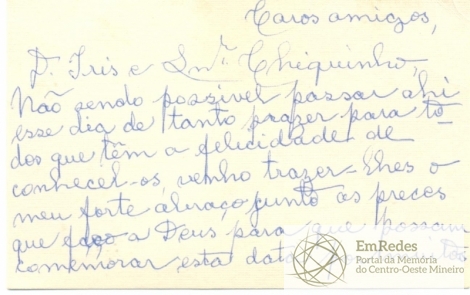 Caros amigos,
D. Iris e Snr. Chiquinho,
Não sendo possivel passar ahi
esse dia de tanto prazer para to-
dos que têm a felicidade de
conhecel-os, venho trazer-lhes o
meu forte abraço junto ás preces
que faço a Deus para que possam
comemorar esta data
EmRedes
Portal da Memória
do Centro-Oeste Mineiro